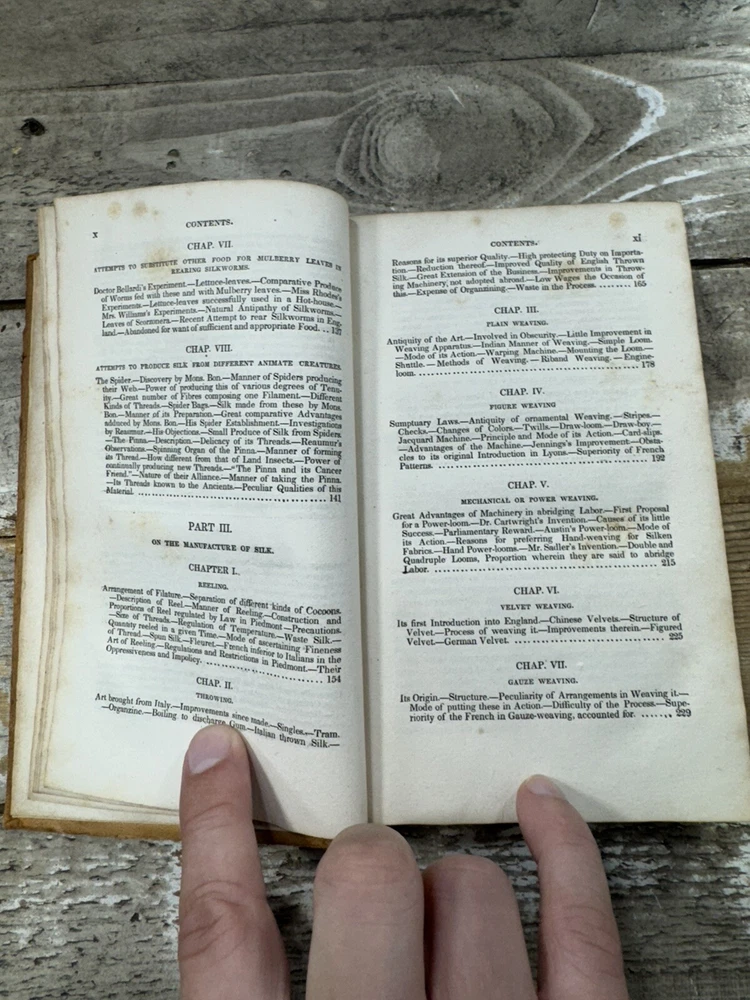 x
CONTENTS.
CHAP. VII.
ATTEMPTS TO SUBSTITUTE OTHER FOOD FOR MULBERRY LEAVES IN
REARING SILKWORMS.
Doctor Bellardi's Experiment.—Lettuce-leaves.—Comparative Produce
of Worms fed with these and with Mulberry leaves.—Miss Rhodes's
Experiments.—Lettuce-leaves successfully used in a Hot-house.—
Mrs. Williams's Experiments.—Natural Antipathy of Silkworms.—
Leaves of Scorzonera.—Recent Attempt to rear Silkworms in Eng-
land.—Abandoned for want of sufficient and appropriate Food. .. 127
CHAP. VIII.
ATTEMPTS TO PRODUCE SILK FROM DIFFERENT ANIMATE CREATURES.
The Spider.—Discovery by Mons. Bon.—Manner of Spiders producing
their Web.—Power of producing this of various degrees of Tenu-
ity.—Great number of Fibres composing one Filament.—Different
Kinds of Threads.—Spider Bags.—Silk made from these by Mons.
Bon.—Manner of its Preparation.—Great comparative Advantages
adduced by Mons. Bon.—His Spider Establishment.—Investigations
by Reaumur.—His Objections.—Small Produce of Silk from Spiders.
—The Pinna.—Description.—Delicacy of its Threads.—Reaumur's
Observations.—Spinning Organ of the Pinna.—Manner of forming
its Thread.—How different from that of Land Insects.—Power of
continually producing new Threads.—"The Pinna and its Cancer
Friend."—Nature of their Alliance.—Manner of taking the Pinna.
—Its Threads known to the Ancients.—Peculiar Qualities of this
Material. .......................................... 141
PART III.
ON THE MANUFACTURE OF SILK.
CHAPTER I.
REELING.
Arrangement of Filature.—Separation of different kinds of Cocoons.
—Description of Reel.—Manner of Reeling.—Construction and
Proportions of Reel regulated by Law in Piedmont.—Precautions.
—Size of Threads.—Regulation of Temperature.—Waste Silk.—
Quantity reeled in a given Time.—Mode of ascertaining Fineness
of Thread.—Spun Silk.—Fleuret.—French inferior to Italians in the
Art of Reeling.—Regulations and Restrictions in Piedmont.—Their
Oppressiveness and Impolicy. .......................... 154
CHAP. II.
THROWING.
Art brought from Italy.—Improvements since made.—Singles.—Tram.
—Organzine.—Boiling to discharge Gum.—Italian thrown Silk.—
CONTENTS.
xi
Reasons for its superior Quality.—High protecting Duty on Importa-
tion.—Reduction thereof.—Improved Quality of English Thrown
Silk.—Great Extension of the Business.—Improvements in Throw-
ing Machinery, not adopted abroad.—Low Wages the Occasion of
this.—Expense of Organzining.—Waste in the Process. ........ 165
CHAP. III.
PLAIN WEAVING.
Antiquity of the Art.—Involved in Obscurity.—Little Improvement in
Weaving Apparatus.—Indian Manner of Weaving.—Simple Loom.
—Mode of its Action.—Warping Machine.—Mounting the Loom.—
Shuttle.—Methods of Weaving.—Riband Weaving.—Engine-
loom. .......................................... 178
CHAP. IV.
FIGURE WEAVING
Sumptuary Laws.—Antiquity of ornamental Weaving.—Stripes.—
Checks.—Changes of Colors.—Twills.—Draw-loom.—Draw-boy.—
Jacquard Machine.—Principle and Mode of its Action.—Card-slips.
—Advantages of the Machine.—Jennings's Improvement.—Obsta-
cles to its original Introduction in Lyons.—Superiority of French
Patterns. .......................................... 192
CHAP. V.
MECHANICAL OR POWER WEAVING.
Great Advantages of Machinery in abridging Labor.—First Proposal
for a Power-loom.—Dr. Cartwright's Invention.—Causes of its little
Success.—Parliamentary Reward.—Austin's Power-loom.—Mode of
its Action.—Reasons for preferring Hand-weaving for Silken
Fabrics.—Hand Power-looms.—Mr. Sadler's Invention.—Double and
Quadruple Looms, Proportion wherein they are said to abridge
Labor. .......................................... 215
CHAP. VI.
VELVET WEAVING.
Its first Introduction into England.—Chinese Velvets.—Structure of
Velvet.—Process of weaving it.—Improvements therein.—Figured
Velvet.—German Velvet. .......................... 225
CHAP. VII.
GAUZE WEAVING.
Its Origin.—Structure.—Peculiarity of Arrangements in Weaving it.—
Mode of putting these in Action.—Difficulty of the Process.—Supe-
riority of the French in Gauze-weaving, accounted for. ....... 229